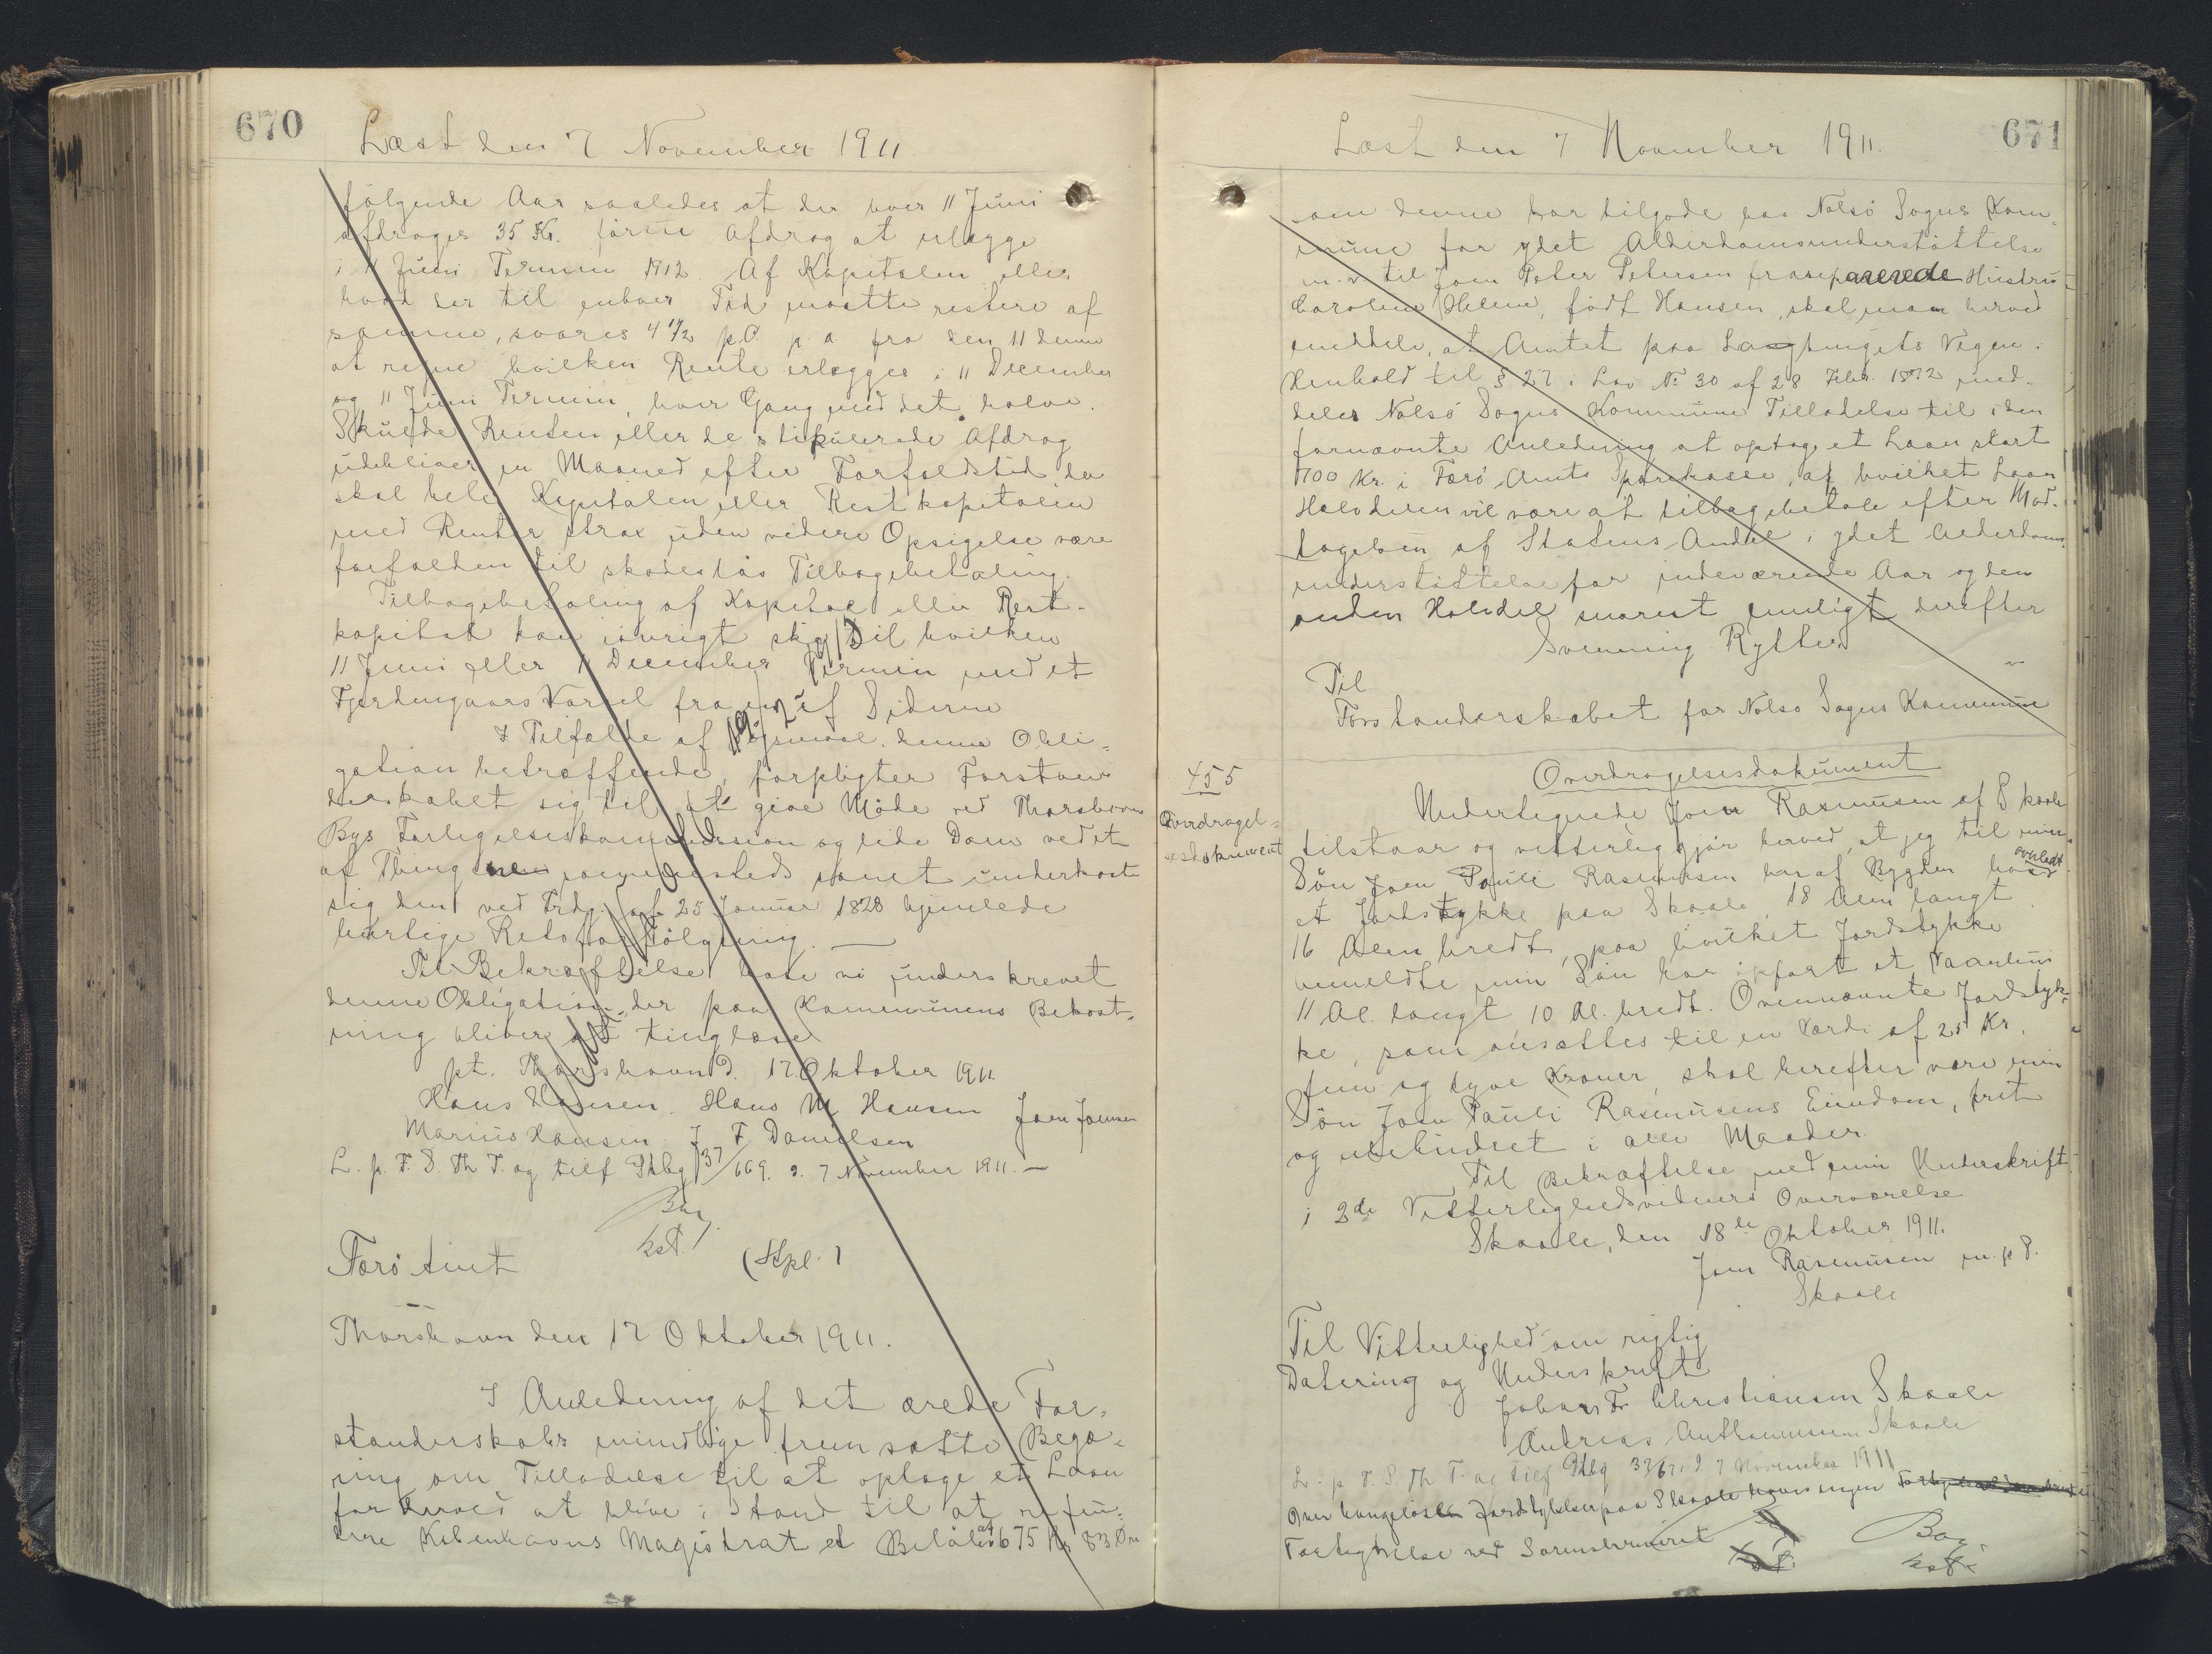 670
Læst den 7 November 1911.
følgende Aar saaledes at der hver 11 Juni
afdrages 35 Kr. første Afdrag at erlægge
i 11 Juni Termin 1912. Af Kapitalen eller
hvad der til enhver Tid maatte restere af
samme, svares 4 1/2 p.C. p.a. fra den 11 denne
at regne hvilken Rente erlægges i 11 December
og 11 Juni Termin, hver Gang med det halve.
Skulde Renten eller de stipulerede Afdrag
udebliver en Maaned efter Forfaldstid da
skal hele Kapitalen eller Restkapitalen
med Renter strax uden videre Opsigelse være
forfalden til skadesløs Tilbagebetaling.
Tilbagebetaling af Kapital eller Rest-
kapital kan iøvrigt ske til hvilken
11 Juni eller 11 December Termin med et
Fjerdingaars Varsel fra en af Siderne
I Tilfælde af Søgsmaal denne Obli=
gation betræffende, forpligter Forstan
derskabet sig til at give Møde ved Thorshavns
Bys Forligelseskommission og lide Dom ved et
af Thingene sammesteds samt underkaste
sig den ved Frdg. af 25 Januar 1828 hjemlede
hurtige Retsforfølgning.
Til Bekræftelse have vi underskrevet
denne Obligation, der paa Kommunens Bekost=
ning bliver at tinglæse
pt. Thorshavn D. 17. Oktober 1911.
Hans Hansen. Hans M Hansen Joen Joensen
Marius Hansen. J. F. Danielsen
L. p. F. S. Th T. og tilf Ptbg 37/669. d. 7 November 1911. —
Bay
kst.
(Stpl.)
Færø Amt
Thorshavn den 17 Oktober 1911.
I Anledning af det ærede For=
standerskabs mundtlige fremsatte Begæ=
ring om Tilladelse til at optage et Laan
for derved at blive i Stand til at refun=
dere Københavns Magistrat et Beløb af 675 Kr 83 Øre
671
Læst den 7 November 1911.
som denne har tilgode hos Nolsø Sogns Kom=
mune for ydet Alderdomsunderstøttelse
m.v. til Joen Peter Petersen fraseparerede Hustru
Caroline Helene, født Hansen, skal man herved
meddele, at Amtet paa Lagtingets Vegne i
Henhold til § 27 i Lov No 30 af 28 Febr. 1872 med-
deler Nolsø Sogns Kommune Tilladelse til i den
fornævnte Anledning at optage et Laan stort
700 Kr. i Færø Amts Sparekasse, af hvilket Laan
Halvdelen vil være at tilbagebetale efter Mod-
tagelsen af Statens Andel i ydet Alderdoms
understøttelse for indeværende Aar og den
anden Halvdel snarest muligt derefter
Svenning Rytter
Til
Forstanderskabet for Nolsø Sogns Kommune
455
Overdragel=
sesdokument
Overdragelsesdokument
Undertegnede Joen Rasmussen af Skaale
tilstaar og vitterliggjør herved, at jeg til min
Søn Joen Pauli Rasmussen har af Bygden hos overladt
et Jordstykke paa Skaale 18 Alen langt
16 Alen bredt, paa hvilket Jordstykke
bemeldte min Søn har opført et Vaanhus
11 Al. langt 10 Al. bredt. Ovennævnte Jordstyk=
ke, som ansættes til en Værdi af 25 Kr.
fem og tyve Kroner, skal herefter være min
Søn Joen Pauli Rasmussens Eiendom, frit
og ubehindret i alle Maader.
Til Bekræftelse med min Underskrift
i 2de Vitterlighedsvidners Overværelse
Skaale, den 18de Oktober 1911.
Joen Rasmussen m. p. P.
Skaale
Til Vitterlighed om rigtig
Datering og Underskrift
Johans Fr. Christiansen Skaale
Andreas Anthoniussen Skaale
L. p. F. S. Th T. og tilf Ptbg 37/671 d 7 November 1911
Over Jordstykker paa Skaale haves ingen
Bay
kst.